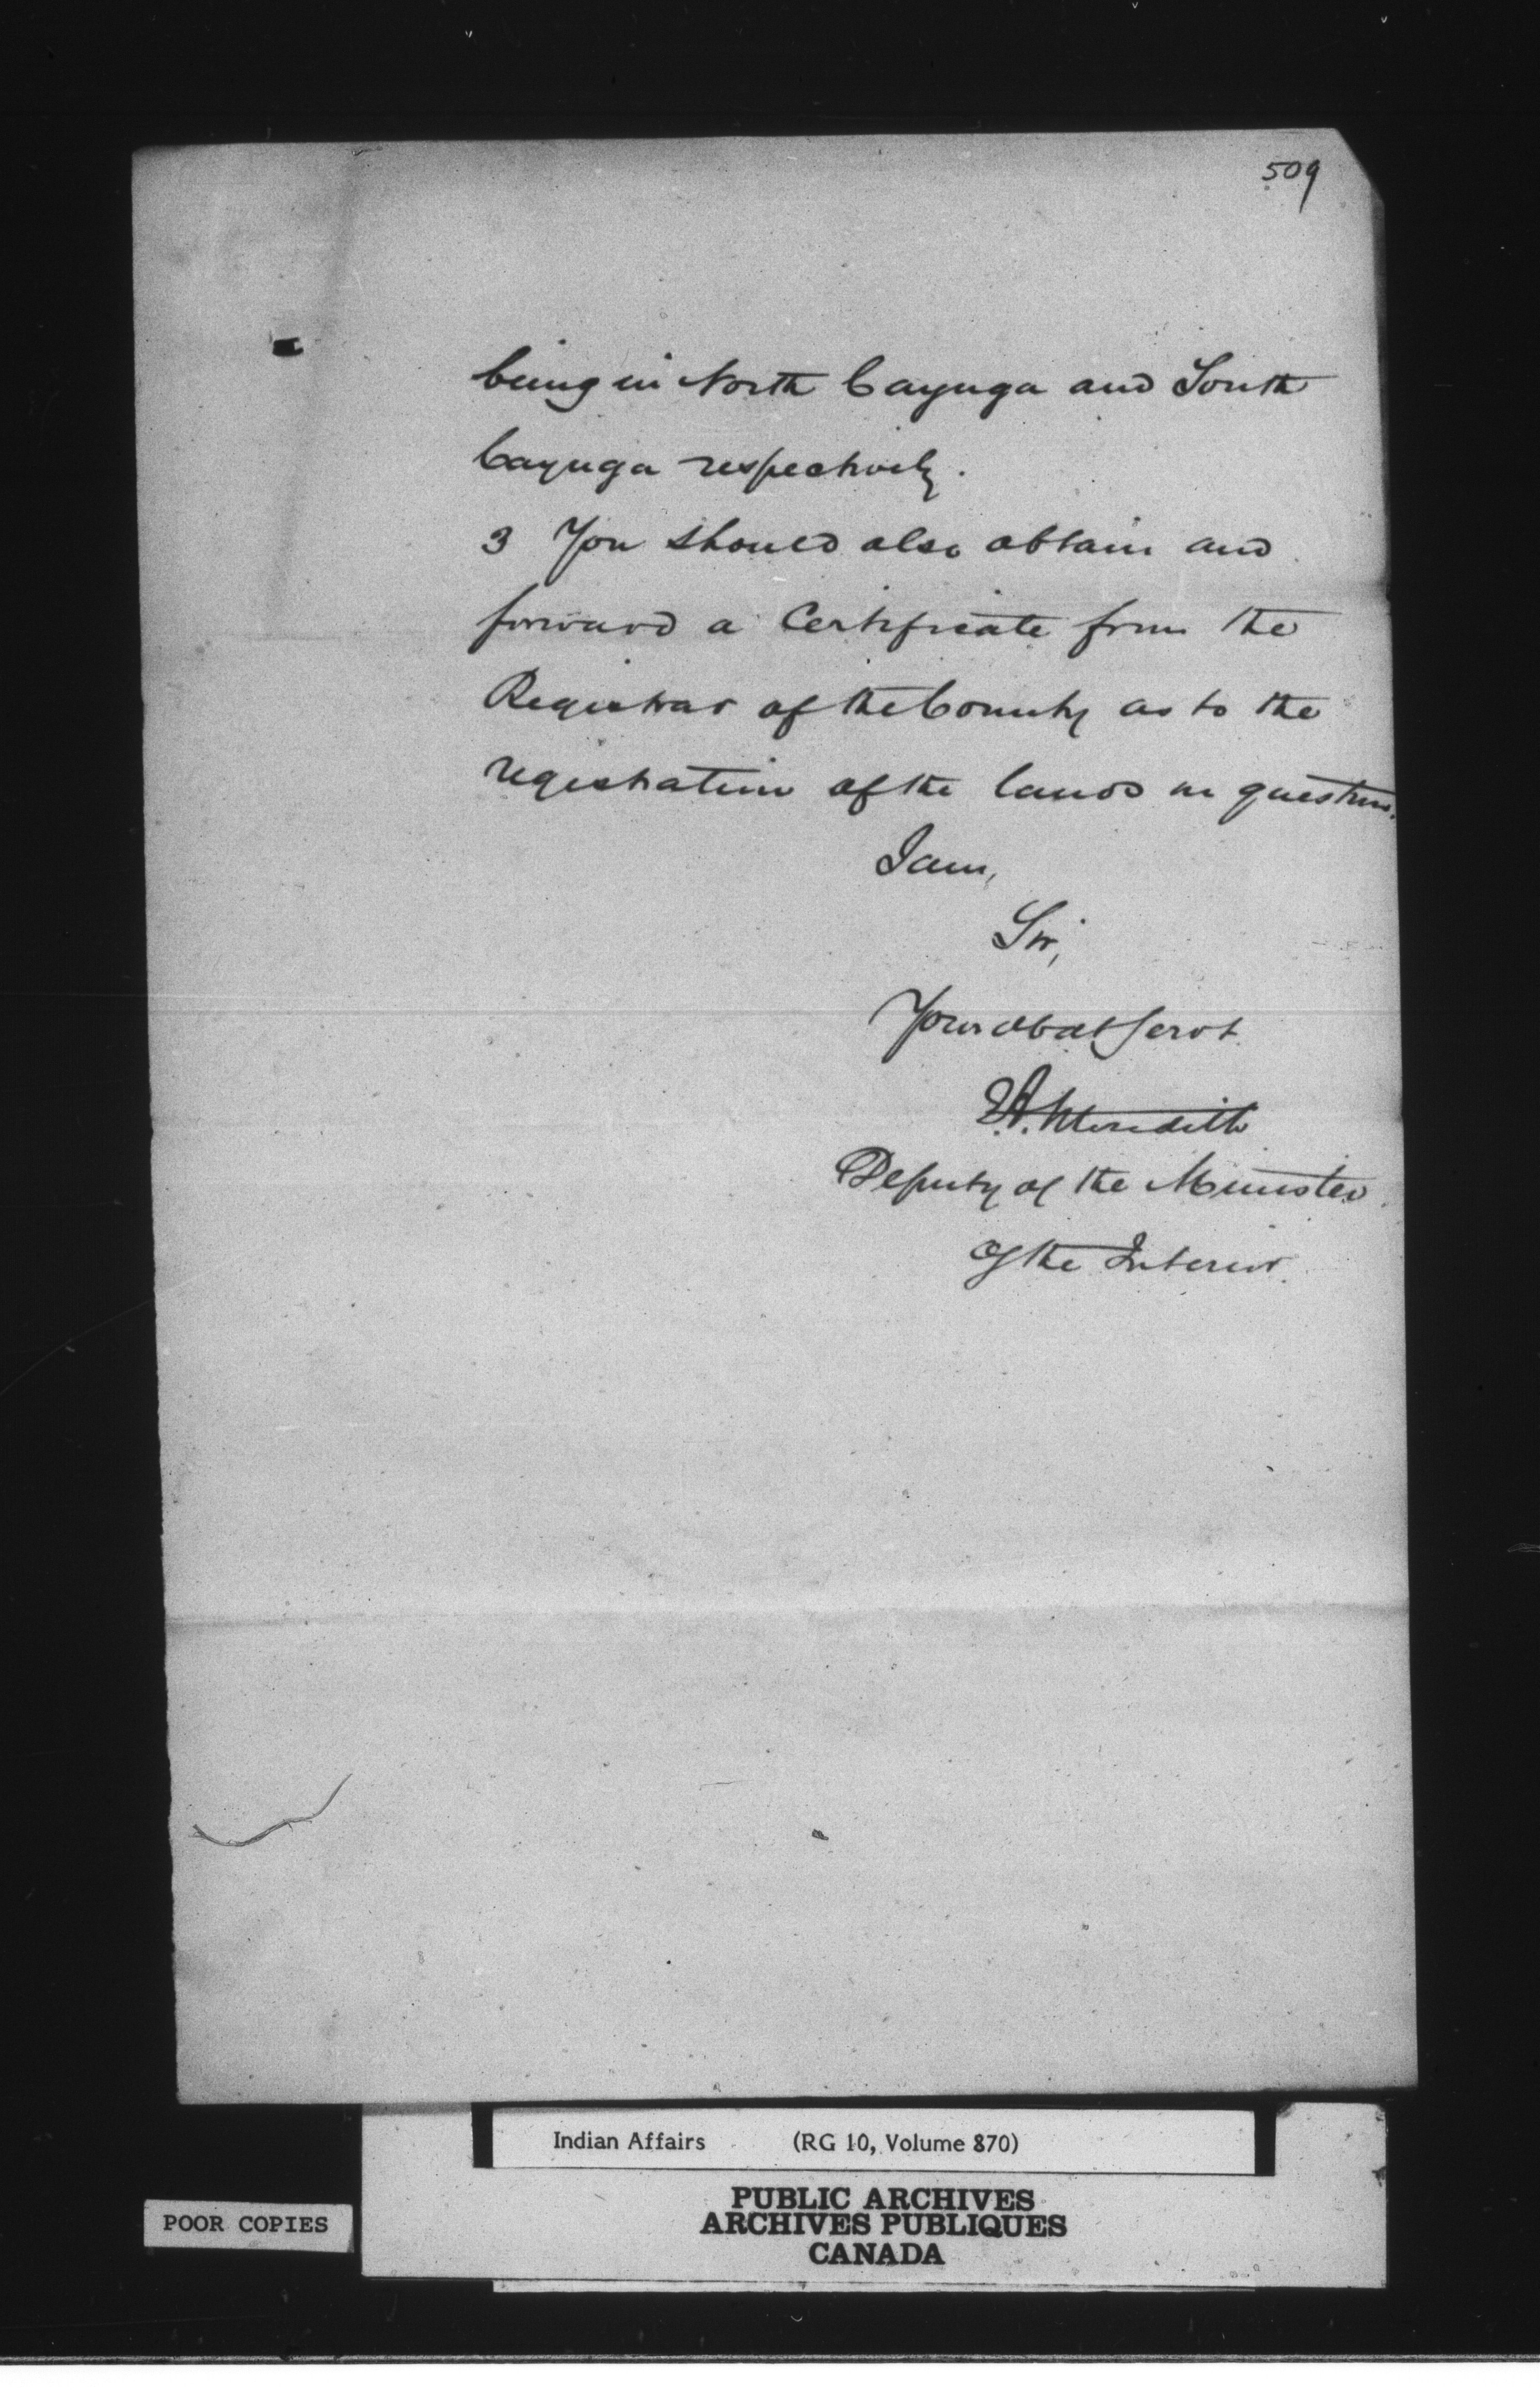 509
being in North Cayuga and South
Cayuga respectively.
3 You should also obtain and
forward a Certificate from the
Registrar of the County as to the
registration of the lands in question.
I am,
Sir,
Your obdt Servt
E A. Meredith
Deputy of the Minister
of the Interior.
Indian Affairs (RG 10, Volume 870)
PUBLIC ARCHIVES
ARCHIVES PUBLIQUES
CANADA
POOR COPIES